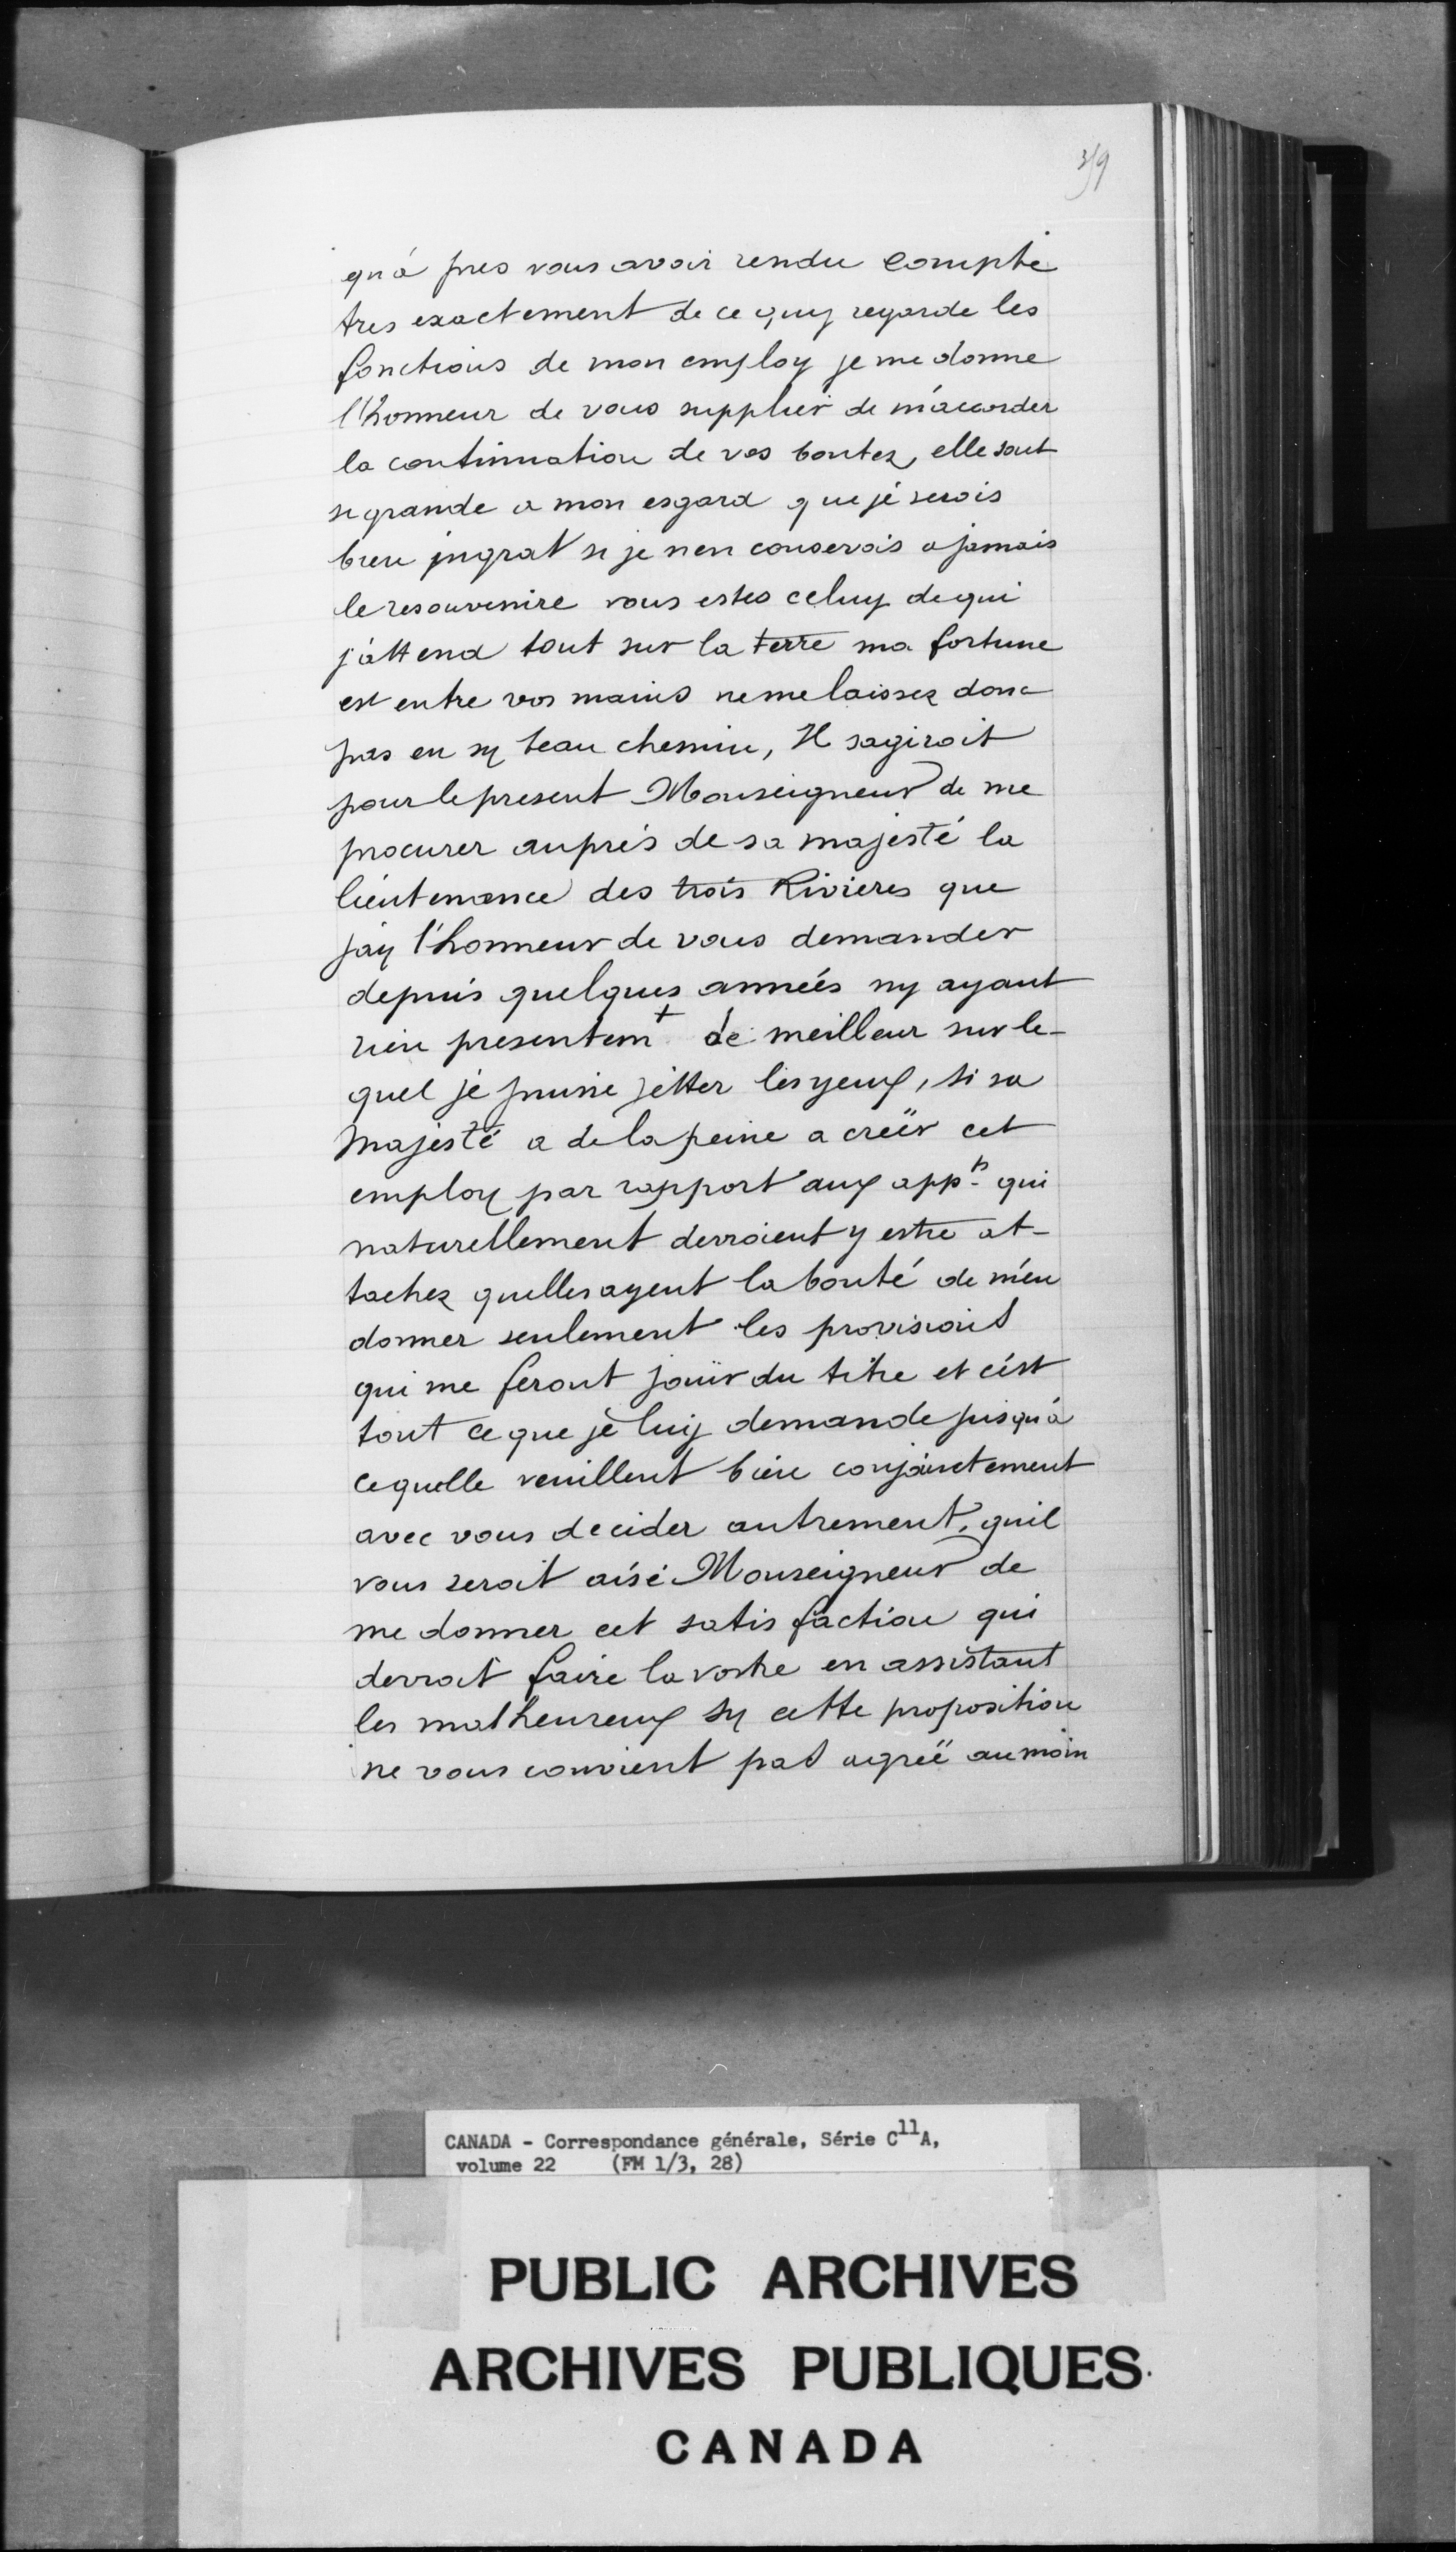 qu'à pres vous avoir rendu compte
tres exactement de ce quy regarde les
fonctions de mon employ je me donne
l'honneur de vous supplier de m'accorder
la continuation de vos bontez, elle sont
si grande a mon esgard que jé serois
bien jngrat si je nen conservois a jamais
le resouvenire vous estes celuy de qui
j'attend tout sur la terre ma fortune
est entre vos mains ne me laissez donc
pas en sy beau chemin, Il sagiroit
pour le present Monseigneur de me
procurer auprés de sa majesté la
lieutenance des trois Rivieres que
jay l'honneur de vous demander
depuis quelques années ny ayant
rien presentemt de meilleur sur le-
quel jé puisse jétter les yeux, si sa
Majesté a de la peine a creër cet
employ par rapport aux appts qui
naturellement devroient y estre at-
tachez quelles ayent la bonté de m'en
donner seulement les provisions
qui me feront joüir du titre et c'est
tout ce que jé luy demande jusqu'à
ce quelle veuillent bien conjointement
avec vous decider autrement, quil
vous seroit aisé Monseigneur de
me donner cet satisfaction qui
devroit faire la vostre en assistant
les malheureux sy cette proposition
ne vous convient pas agreë au moin
CANADA - Correspondance générale, Série C11A,
volume 22 (FM 1/3, 28)
PUBLIC ARCHIVES
ARCHIVES PUBLIQUES
CANADA